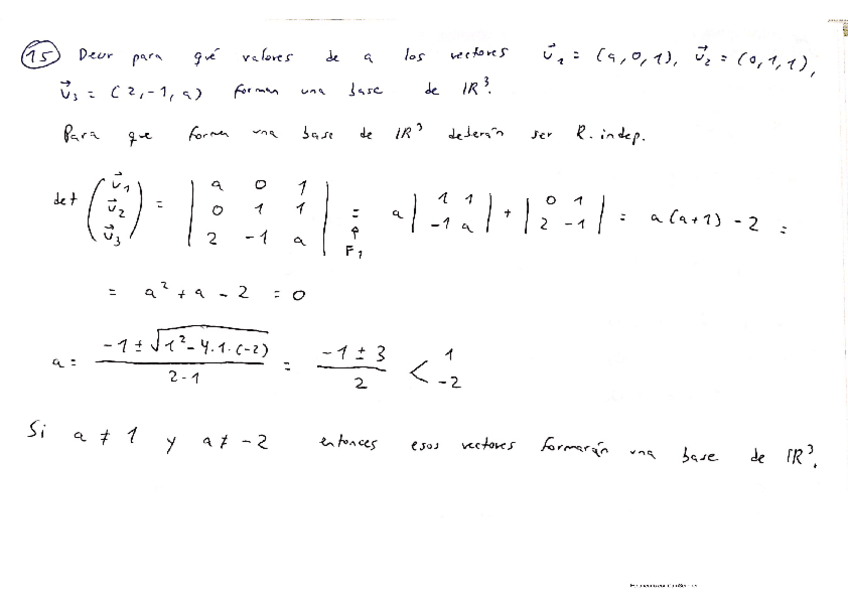 15) Decir para qué valores de a los vectores v⃗₁ = (a,0,1), v⃗₂ = (0,1,1),
v⃗₃ = (2,-1,a) forman una base de IR³.
Para que formen una base de IR³ deberán ser l. indep.
det (v⃗₁ v⃗₂ v⃗₃) = | a 0 1 ; 0 1 1 ; 2 -1 a | = a | 1 1 ; -1 a | + | 0 1 ; 2 -1 | = a(a+1) - 2 =
↑
F₁
= a² + a - 2 = 0
a = (-1 ± √(1² - 4·1·(-2))) / (2·1) = (-1 ± 3) / 2 < 1 ; -2
Si a ≠ 1 y a ≠ -2 entonces esos vectores formarán una base de IR³.